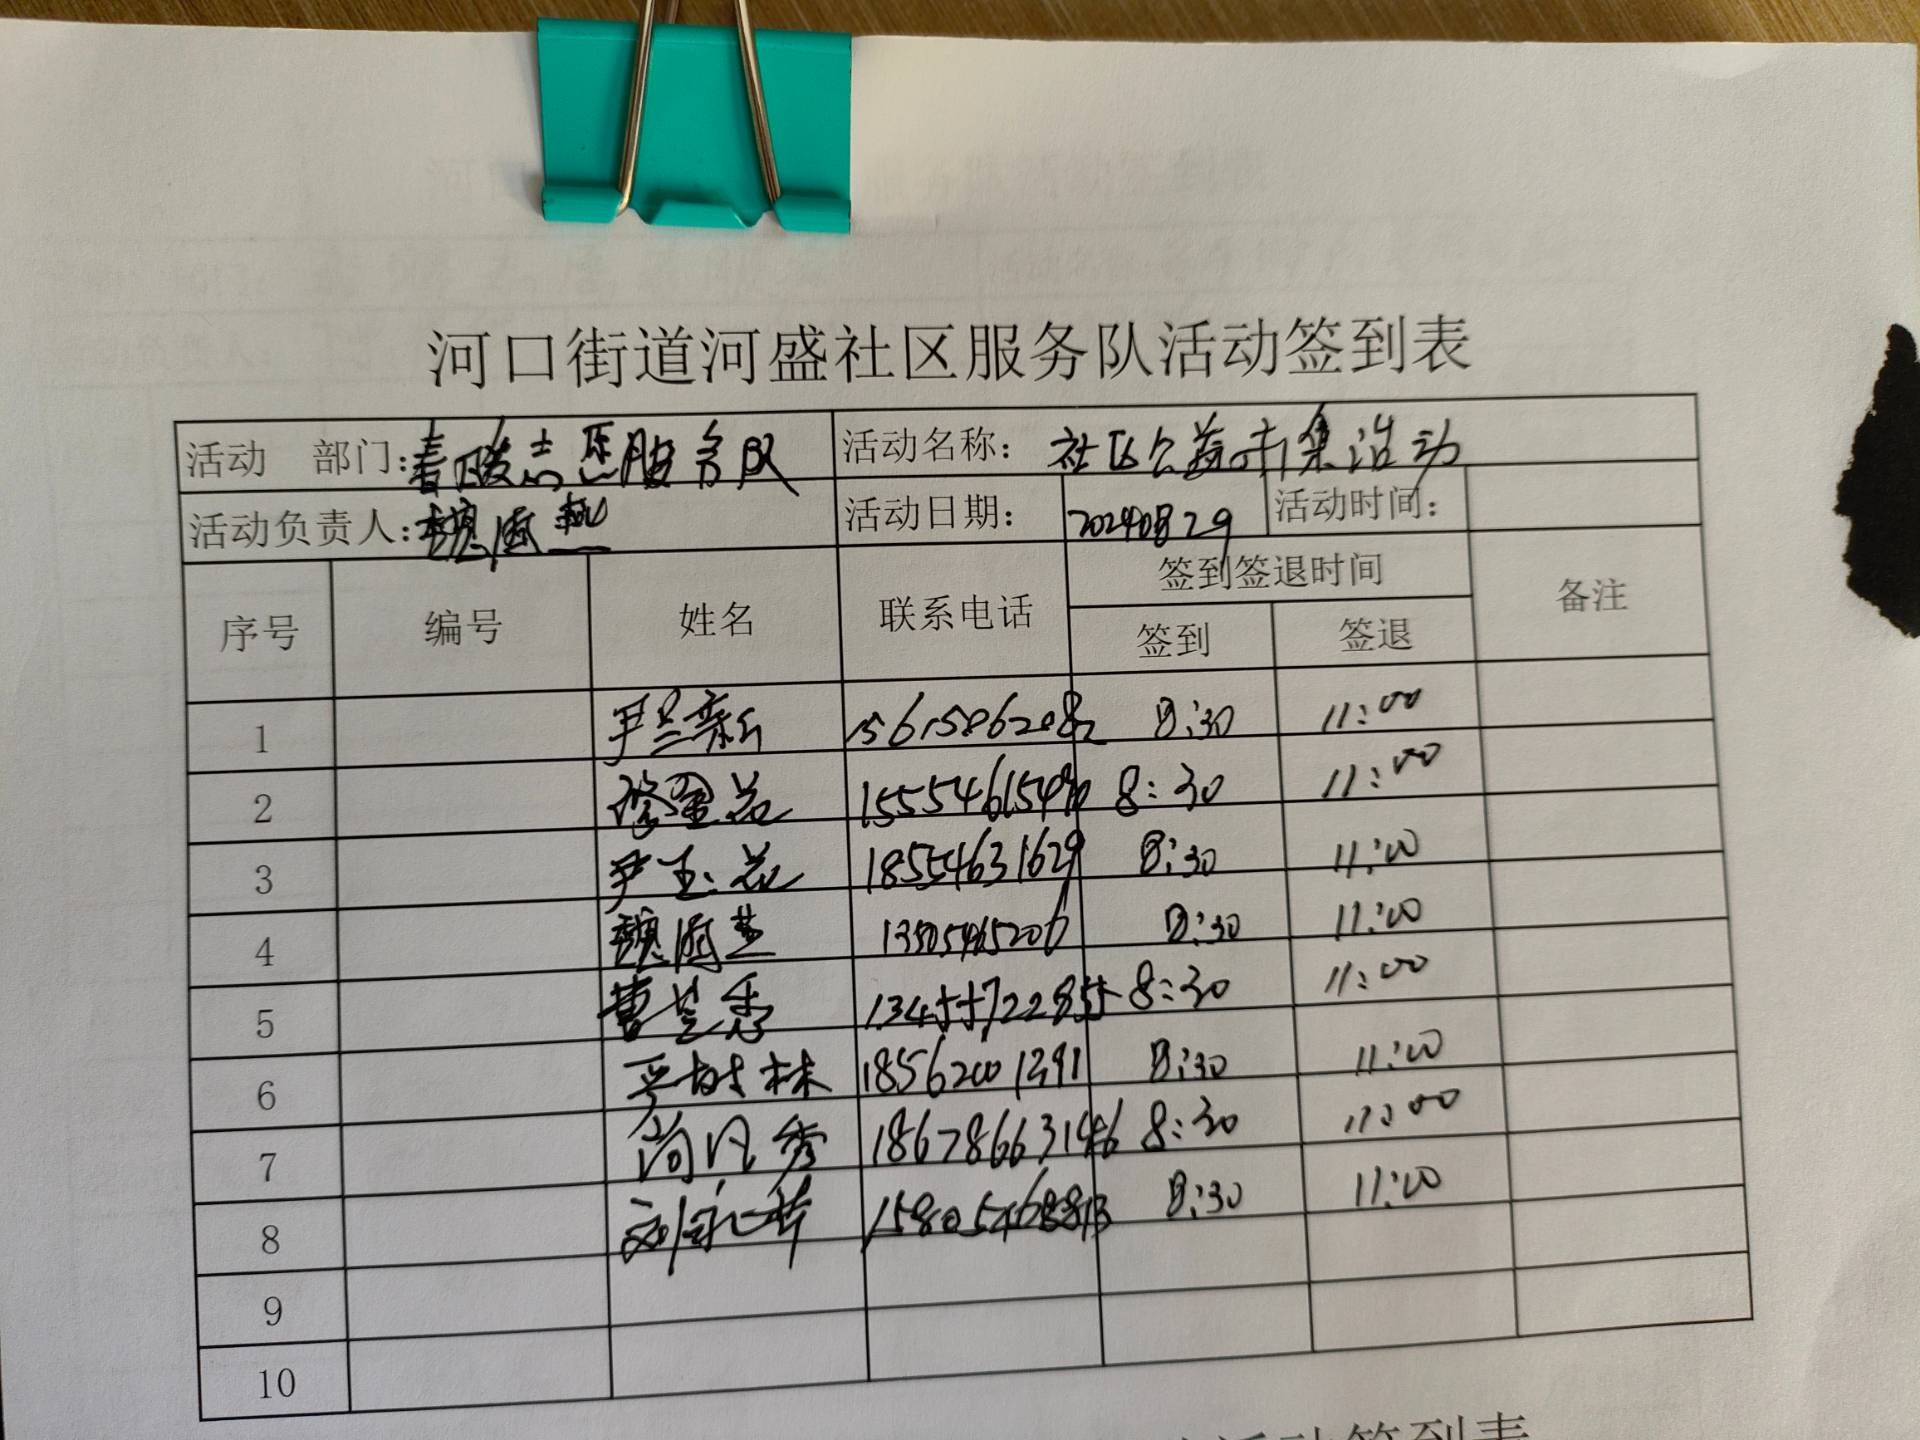 河口街道河盛社区服务队活动签到表
活动 部门:春暖志愿服务队 活动名称: 社区公益市集活动
活动负责人: 活动日期: 20240829 活动时间:
序号 编号 姓名 联系电话 签到签退时间 备注
签到 签退
1 尹兰新 15615862082 8:30 11:00
2 1555461549 8:30 11:00
3 尹玉花 18554631629 8:30 11:00
4 13505465206 8:30 11:00
5 曹兰香 13455722855 8:30 11:00
6 树林 18562001391 8:30 11:00
7 尚秀 18678663146 8:30 11:00
8 刘 15805468813 8:30 11:00
9
10
活动签到表